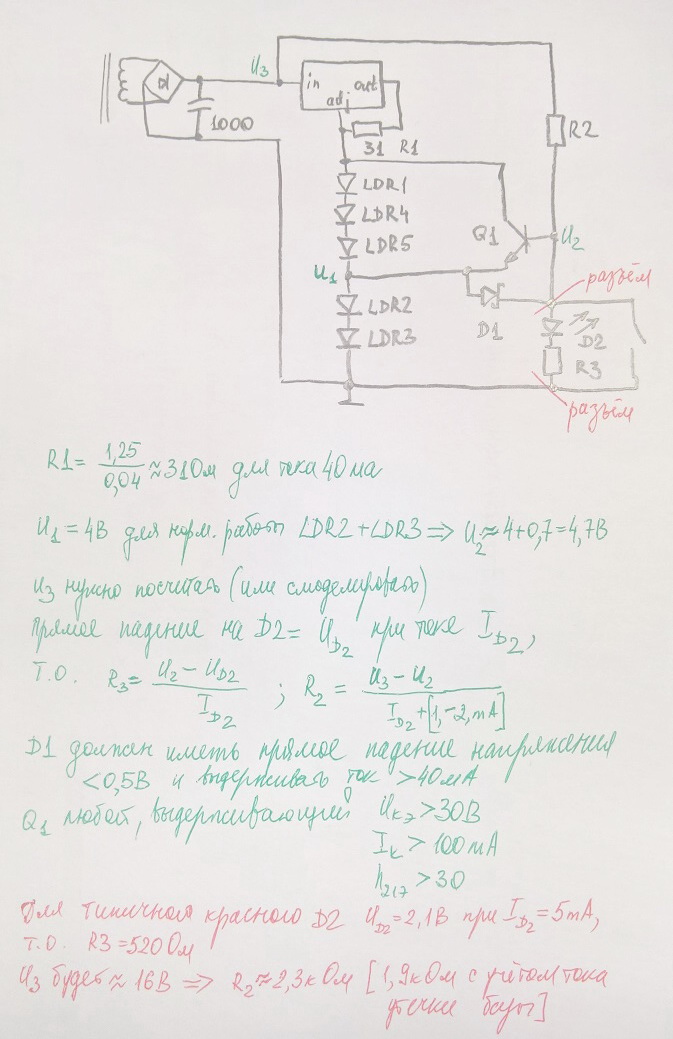 U3
in
out
adj
D1
1000
31 R1
R2
LDR1
LDR4
LDR5
Q1
U2
U1
разъём
LDR2
D1
D2
LDR3
R3
разъём
R1 = 1,25 / 0,04 ≈ 31 Ом для тока 40 ма
U1 = 4В для норм. работы LDR2 + LDR3 => U2 ≈ 4+0,7 = 4,7В
U3 нужно посчитать (или смоделировать)
Прямое падение на D2 = UD2 при токе ID2,
Т.О. R3 = U2 - UD2 / ID2 ; R2 = U3 - U2 / ID2 + [1,-2, mA]
D1 должен иметь прямое падение напряжения
<0,5В и выдерживать ток >40мА
Q1 любой, выдерживающий Uкэ >30В
Iк > 100mA
h21э >30
Для типичного красного D2 UD2 = 2,1В при ID2 = 5mA,
т.о. R3 = 520 Ом
U3 будет ≈ 16В => R2 ≈ 2,3кОм [1,9кОм с учётом тока
утечки базы]